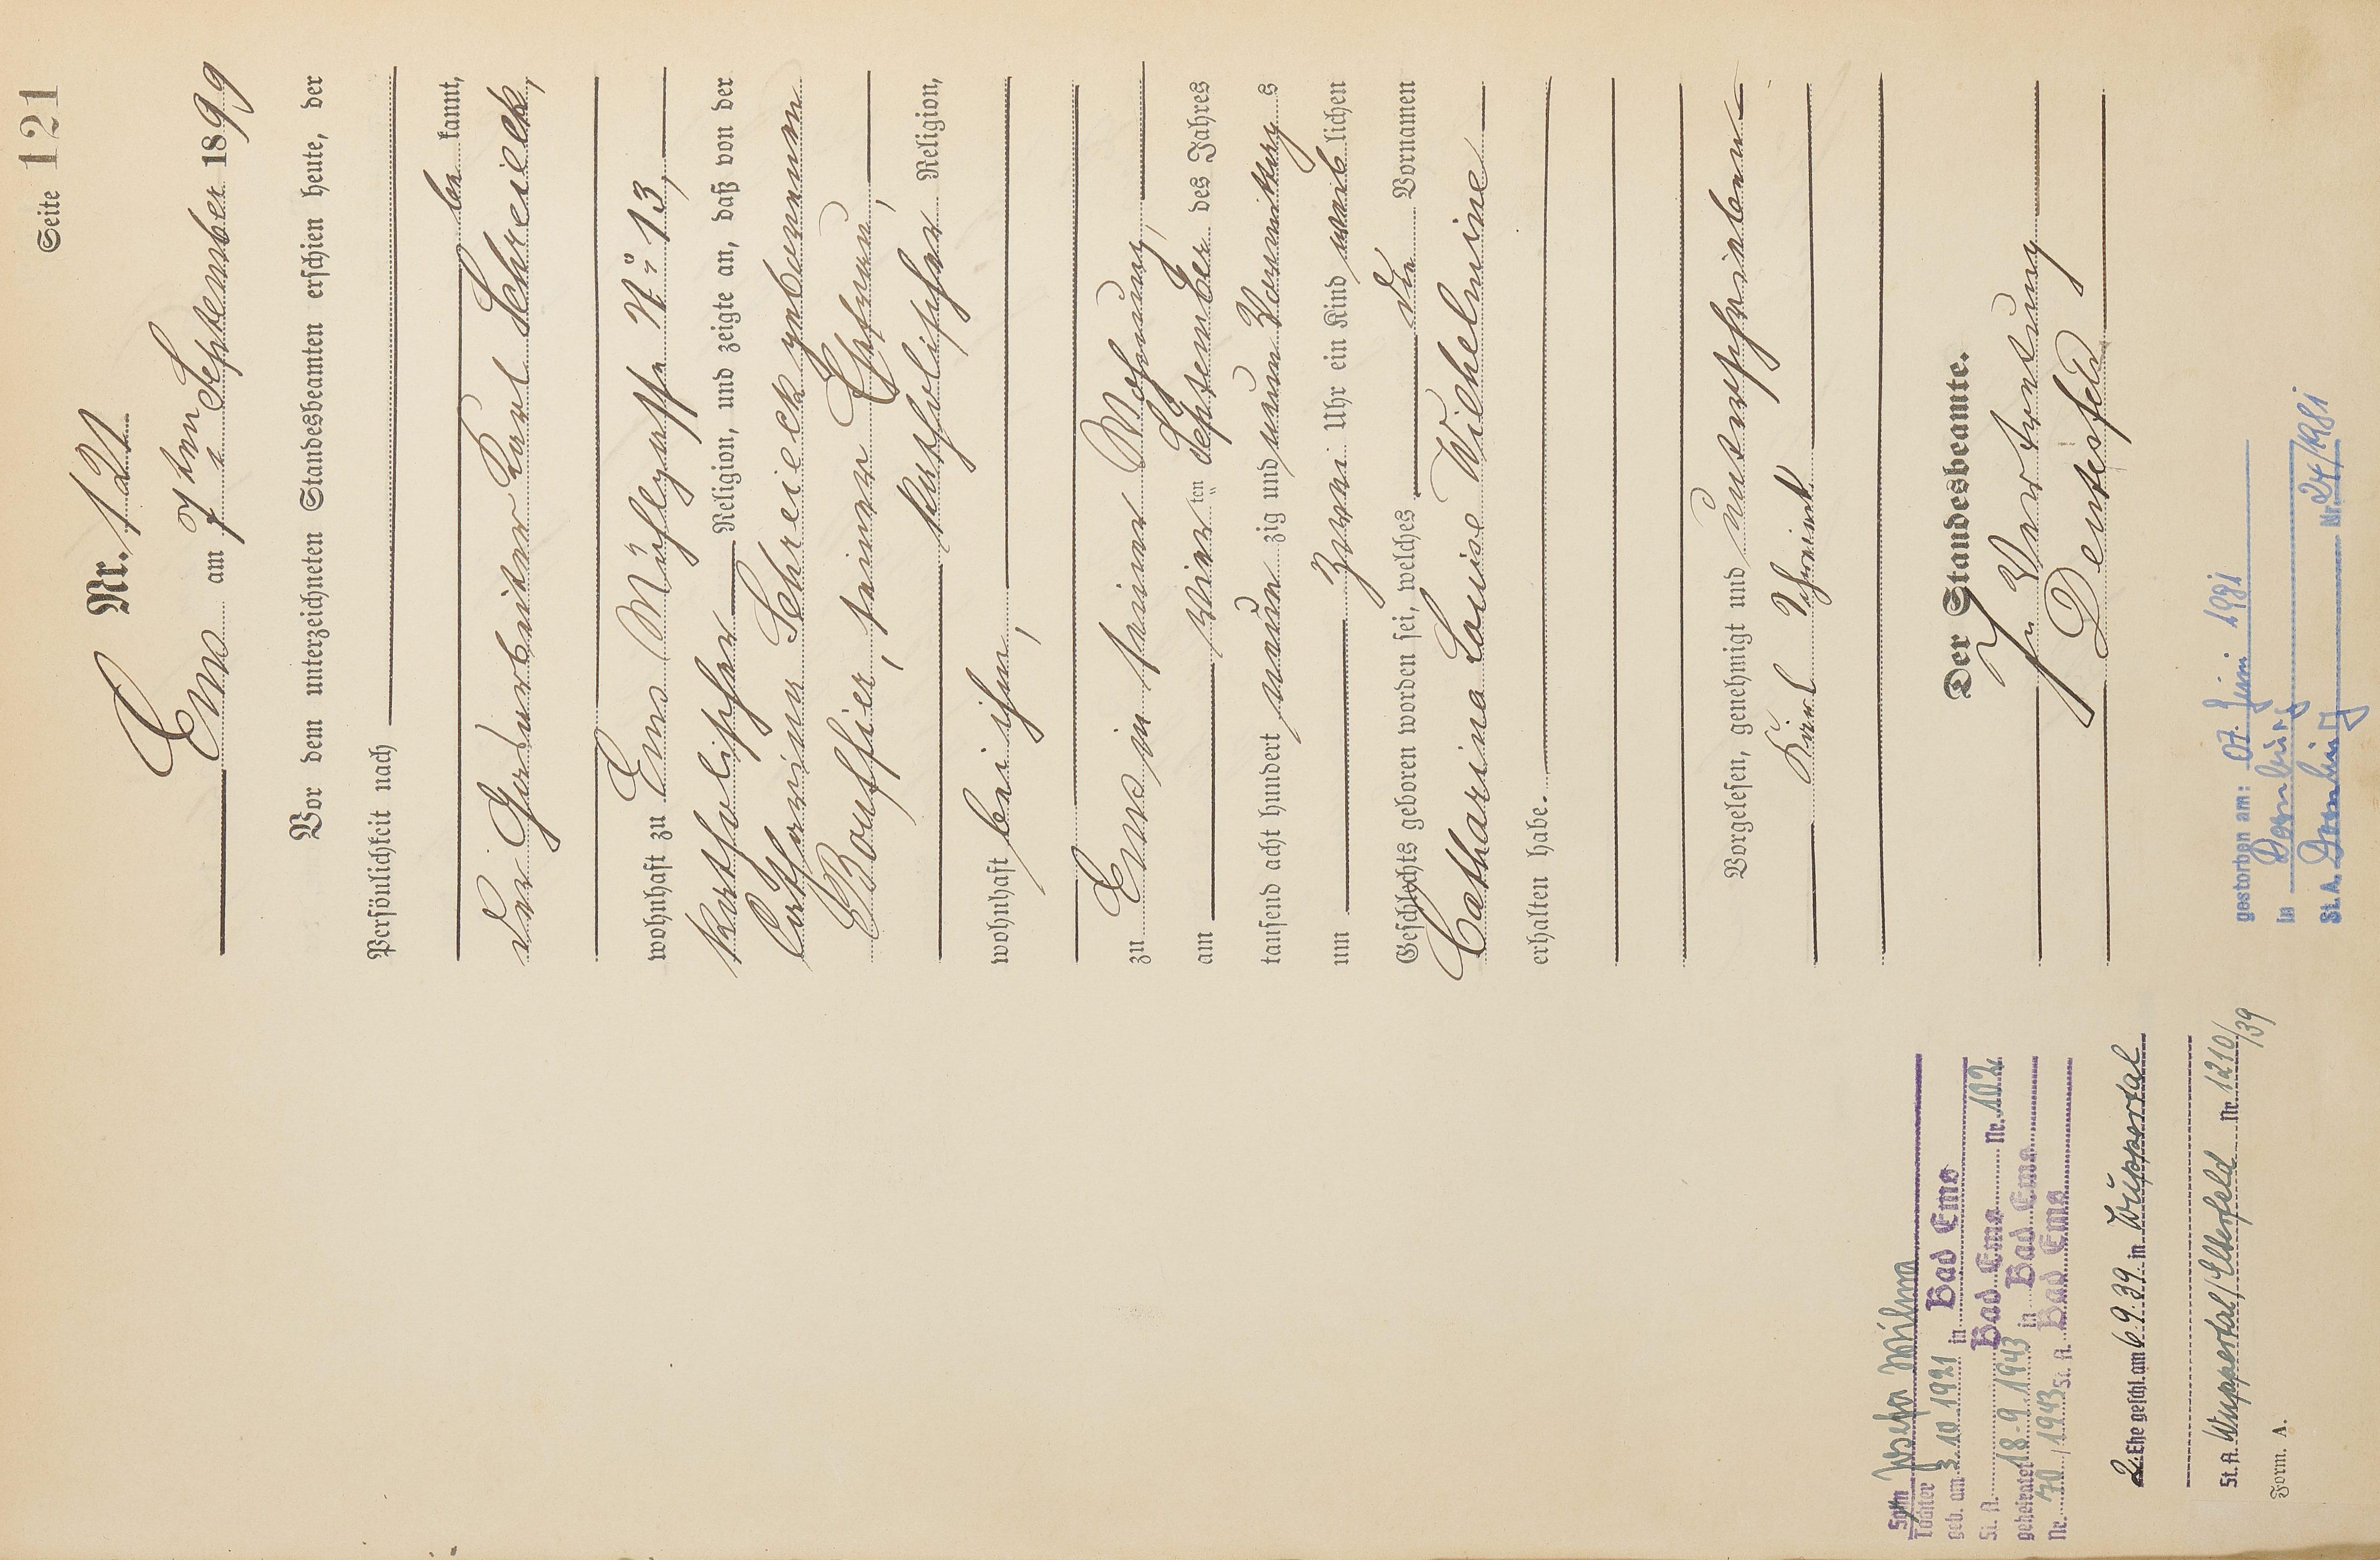 Seite 121
Nr. 121
Ems am 7ten September 1899
Vor dem unterzeichneten Standesbeamten erschien heute, der
Persönlichkeit nach
be kannt,
der Gasarbeiter Karl Schreieck,
wohnhaft zu Ems Mühlgasse No 13,
katholischer Religion, und zeigte an, daß von der
Catharina Schreieck geborenen
Bouffier, seiner Ehefrau,
katholischer Religion,
wohnhaft bei ihm,
zu Ems in seiner Wohnung,
am vier ten September des Jahres
tausend acht hundert neun zig und neun Vormittags
um zwei Uhr ein Kind weib lichen
Geschlechts geboren worden sei, welches die Vornamen
Catharina Louise Wilhelmine
erhalten habe.
Vorgelesen, genehmigt und unterschrieben
Karl Schreieck
Der Standesbeamte.
In Vertretung
gestorben am: 07. Juni 1981
in Dornburg
St.A. Dornburg Nr. 24/1981
Sohn
Tochter Josefa Wilma
geb. am 3.10.1921 in Bad Ems
St. A. Bad Ems Nr. 102
geheiratet 18.9.1943 in Bad Ems
Nr. 70/1943 St. A. Bad Ems
2. Ehe geschl. am 6.9.39. in Wuppertal
St. A. Wuppertal/Elberfeld Nr. 1210/39
Form. A.